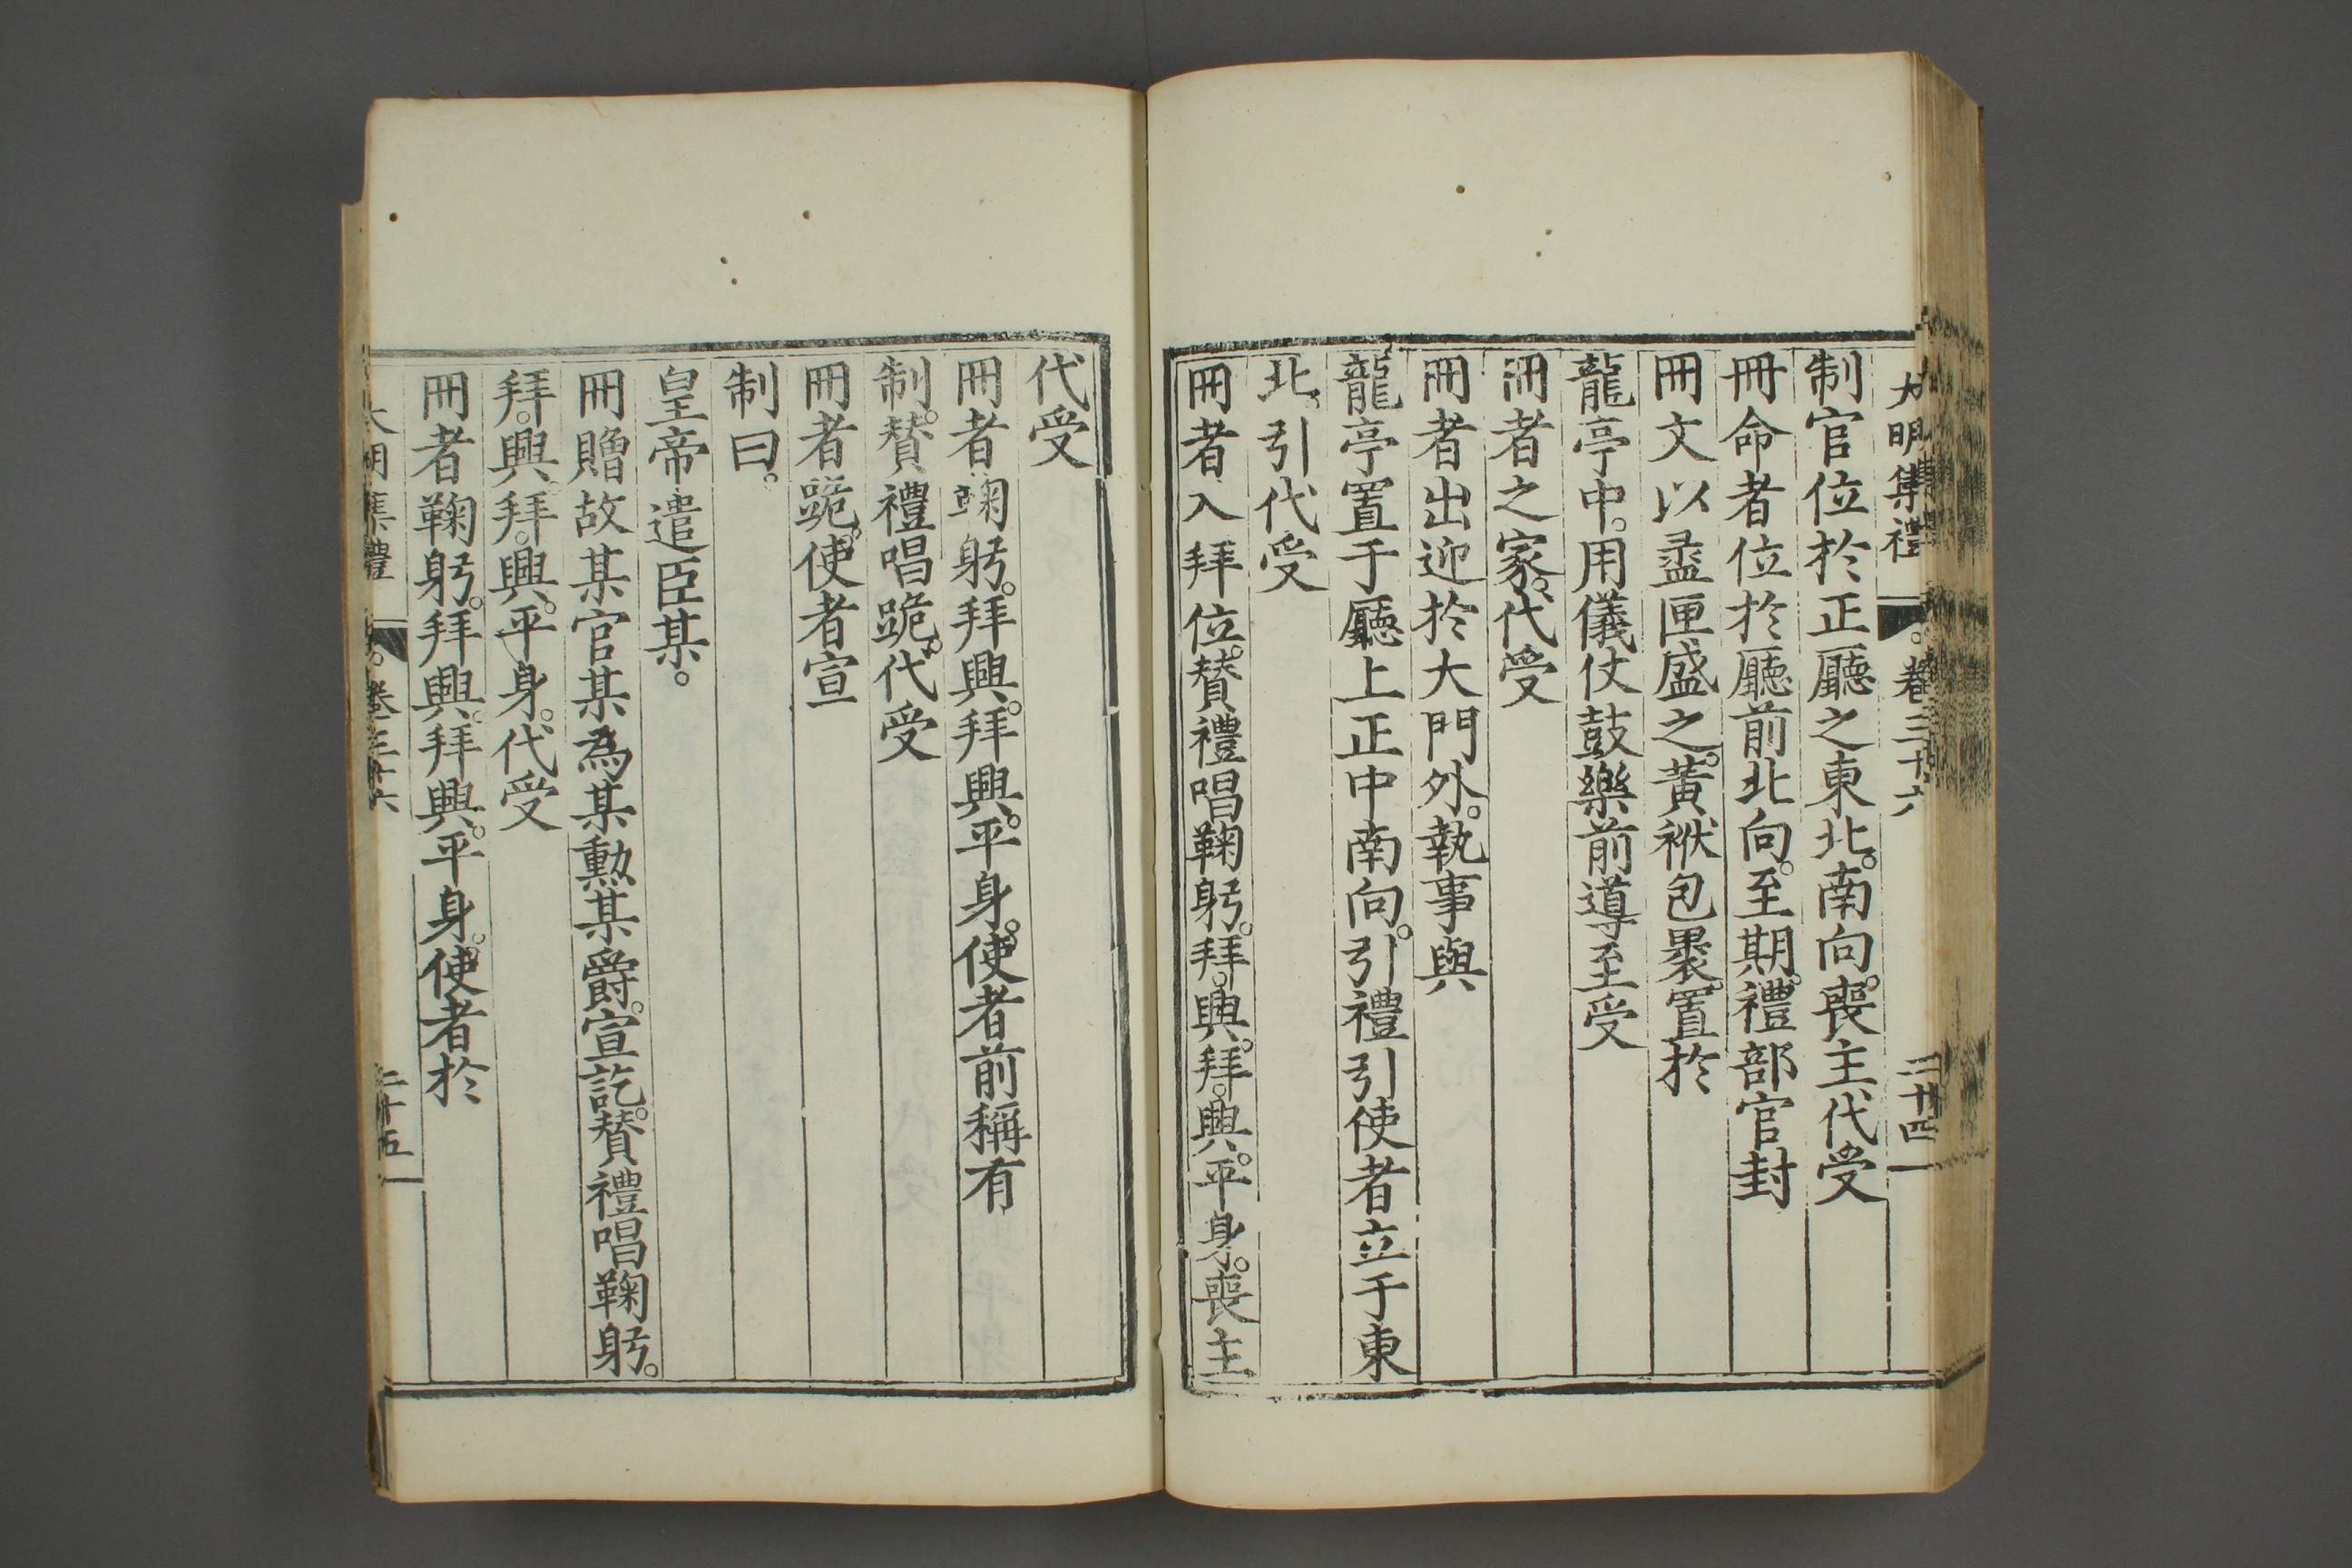 大明集禮 卷三十六 二十四
制官位於正廳之東北。南向。喪主代受
冊命者位於廳前北向。至期。禮部官封
冊文以盝匣盛之。黃袱包褁。置於
龍亭中。用儀仗鼓樂前導至受
冊者之家。代受
冊者出迎於大門外。執事舁
龍亭置于廳上正中南向。引禮引使者立于東
北。引代受
冊者入拜位。賛禮唱鞠躬。拜。興。拜。興。平身。喪主
代受
冊者鞠躬。拜興。拜興。平身。使者前稱有
制。賛禮唱跪。代受
冊者跪。使者宣
制曰。
皇帝遣臣某。
冊贈故某官某為某勳某爵。宣訖。賛禮唱鞠躬。
拜。興。拜。興。平身。代受
冊者鞠躬。拜興。拜興。平身。使者於
大明集禮 卷三十六 二十五